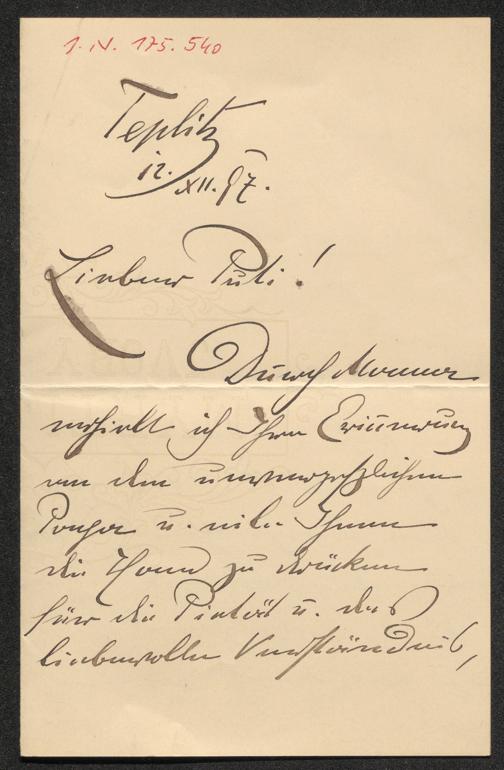 J. N. 175.540
Teplitz
12. XII. 97.
Lieber Puli!
Durch Mama
erhielt ich Ihre Erinnerung
an den unvergeßlichen
u. eile Ihnen
die Hand zu drücken
für die Pietät u. das
liebevolle Verständnis,